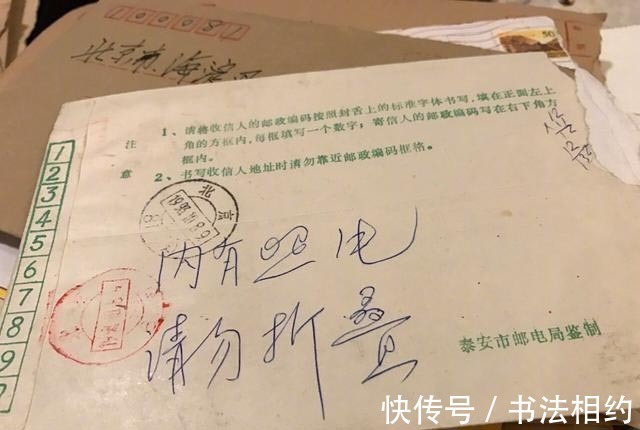 50
北京市海淀
1、请将收信人的邮政编码按照封舌上的标准字体书写，填在正面左上
注 角的方框内，每框填写一个数字；寄信人的邮政编码写在右下角方
框内。
意 2、书写收信人地址时请勿靠近邮政编码框格。
1
2
3
4
5
6
7
8
9
北京
内有照片
请勿折叠
泰安市邮电局鉴制
快传号／书法相约